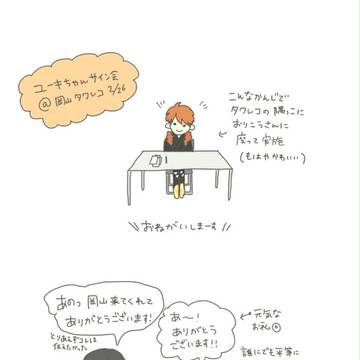 ユーキちゃんサイン会
@岡山タワレコ 2/26
こんなかんじで
タワレコの隅っこに
おりこうさんに
座って実施
(もはやかわいい)
\\ おねがいしまーす //
あのっ 岡山来てくれて
ありがとうございます!
とりあえずコレは
伝えたかった
あ〜!
ありがとう
ございます!!
元気な
お礼
誰にでも平等に